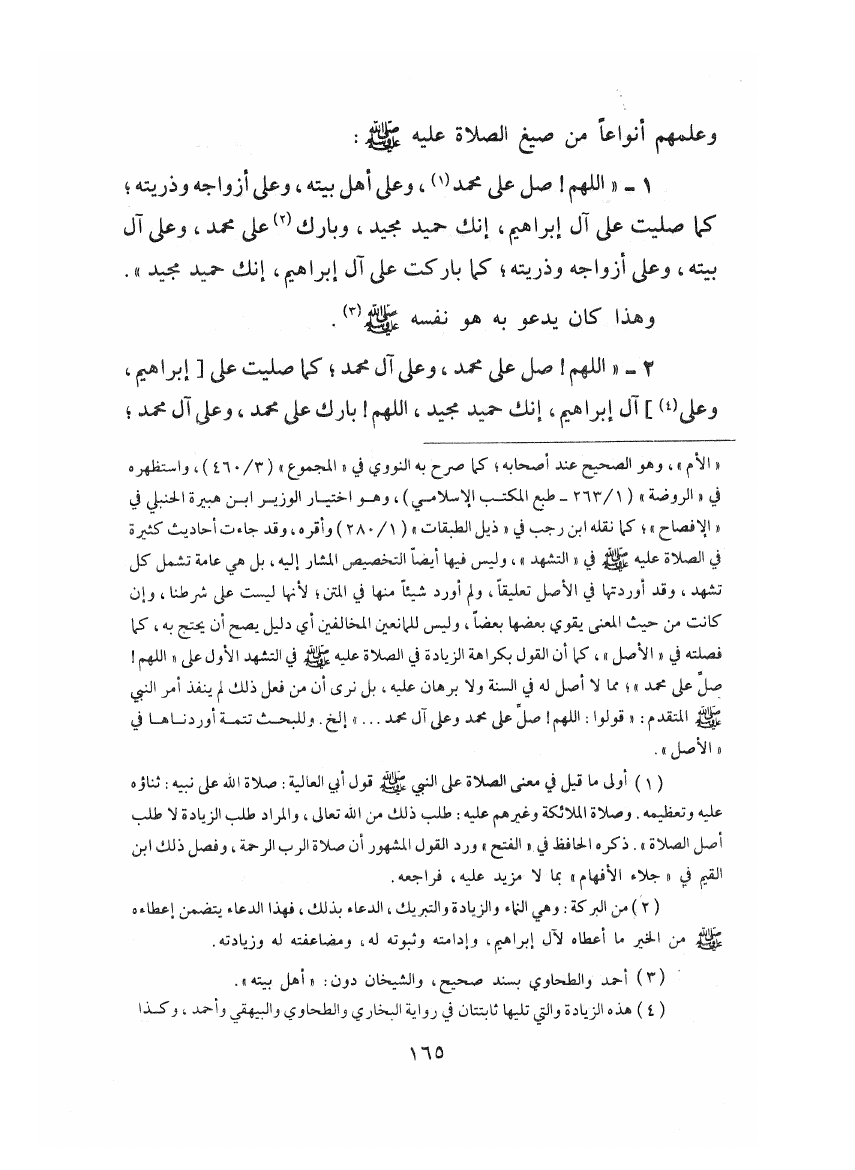 وعلمهم أنواعاً من صيغ الصلاة عليه ﷺ :
١ ـ « اللهم ! صل على محمد(١) ، وعلى أهل بيته ، وعلى أزواجه وذريته ؛
كما صليت على آل إبراهيم ، إنك حميد مجيد ، وبارك(٢) على محمد ، وعلى آل
بيته ، وعلى أزواجه وذريته ؛ كما باركت على آل إبراهيم ، إنك حميد مجيد » .
وهذا كان يدعو به هو نفسه ﷺ(٣) .
٢ ـ « اللهم ! صل على محمد ، وعلى آل محمد ؛ كما صليت على [ إبراهيم ،
وعلى(٤) ] آل إبراهيم ، إنك حميد مجيد ، اللهم ! بارك على محمد ، وعلى آل محمد ؛
« الأم » ، وهو الصحيح عند أصحابه ؛ كما صرح به النووي في « المجموع » ( ٣/ ٤٦٠ ) ، واستظهره
في « الروضة » ( ١/ ٢٦٣ ـ طبع المكتب الإسلامي ) ، وهو اختيار الوزير ابن هبيرة الحنبلي في
« الإفصاح » ؛ كما نقله ابن رجب في « ذيل الطبقات » ( ١/ ٢٨٠ ) وأقره ، وقد جاءت أحاديث كثيرة
في الصلاة عليه ﷺ في « التشهد » ، وليس فيها أيضاً التخصيص المشار إليه ، بل هي عامة تشمل كل
تشهد ، وقد أوردتها في الأصل تعليقاً ، ولم أورد شيئاً منها في المتن ؛ لأنها ليست على شرطنا ، وإن
كانت من حيث المعنى يقوي بعضها بعضاً ، وليس للمانعين المخالفين أي دليل يصح أن يحتج به ، كما
فصلته في « الأصل » ، كما أن القول بكراهة الزيادة في الصلاة عليه ﷺ في التشهد الأول على « اللهم !
صلِّ على محمد » ؛ مما لا أصل له في السنة ولا برهان عليه ، بل نرى أن من فعل ذلك لم ينفذ أمر النبي
ﷺ المتقدم : « قولوا : اللهم ! صلِّ على محمد وعلى آل محمد ... » إلخ . وللبحث تتمة أوردناها في
« الأصل » .
( ١ ) أولى ما قيل في معنى الصلاة على النبي ﷺ قول أبي العالية : صلاة الله على نبيه : ثناؤه
عليه وتعظيمه . وصلاة الملائكة وغيرهم عليه : طلب ذلك من الله تعالى ، والمراد طلب الزيادة لا طلب
أصل الصلاة » . ذكره الحافظ في « الفتح » ورد القول المشهور أن صلاة الرب الرحمة ، وفصل ذلك ابن
القيم في « جلاء الأفهام » بما لا مزيد عليه ، فراجعه .
( ٢ ) من البركة : وهي النماء والزيادة والتبريك ، الدعاء بذلك ، فهذا الدعاء يتضمن إعطاءه
ﷺ من الخير ما أعطاه لآل إبراهيم ، وإدامته وثبوته له ، ومضاعفته له وزيادته .
( ٣ ) أحمد والطحاوي بسند صحيح ، والشيخان دون : « أهل بيته » .
( ٤ ) هذه الزيادة والتي تليها ثابتتان في رواية البخاري والطحاوي والبيهقي وأحمد ، وكذا
١٦٥